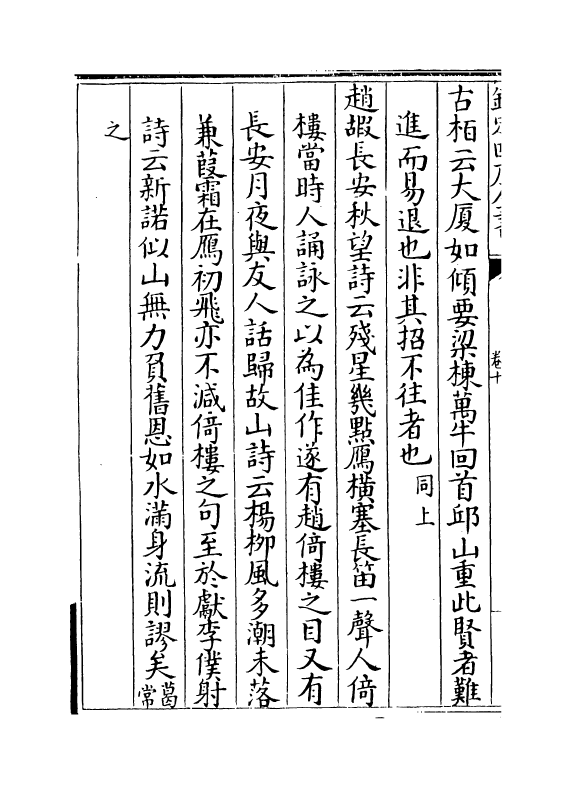 欽定四庫全書
卷十
古栢云大厦如傾要梁棟萬牛回首邱山重此賢者難
進而易退也非其招不往者也同上
趙嘏長安秋望詩云殘星幾點鴈橫塞長笛一聲人倚
樓當時人誦詠之以為佳作遂有趙倚樓之目又有
長安月夜與友人話歸故山詩云楊柳風多潮未落
兼葭霜在鴈初飛亦不減倚樓之句至於獻李僕射
詩云新諾似山無力負舊恩如水滿身流則謬矣葛常
之